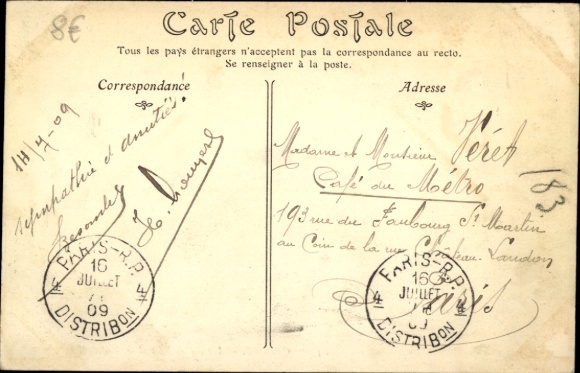 8€
Carte Postale
Tous les pays étrangers n'acceptent pas la correspondance au recto.
Se renseigner à la poste.
Correspondance
Adresse
14/7-09
sympathie et amitiés!
Madame et Monsieur Véret
Café du Métro
193 rue du Faubourg St Martin
au Coin de la rue Château-Landon
Paris
183
PARIS-R.P.
16
JUILLET
09
4 4
DISTRIBON
PARIS-R.P.
16
JUILLET
09
4 4
DISTRIBON